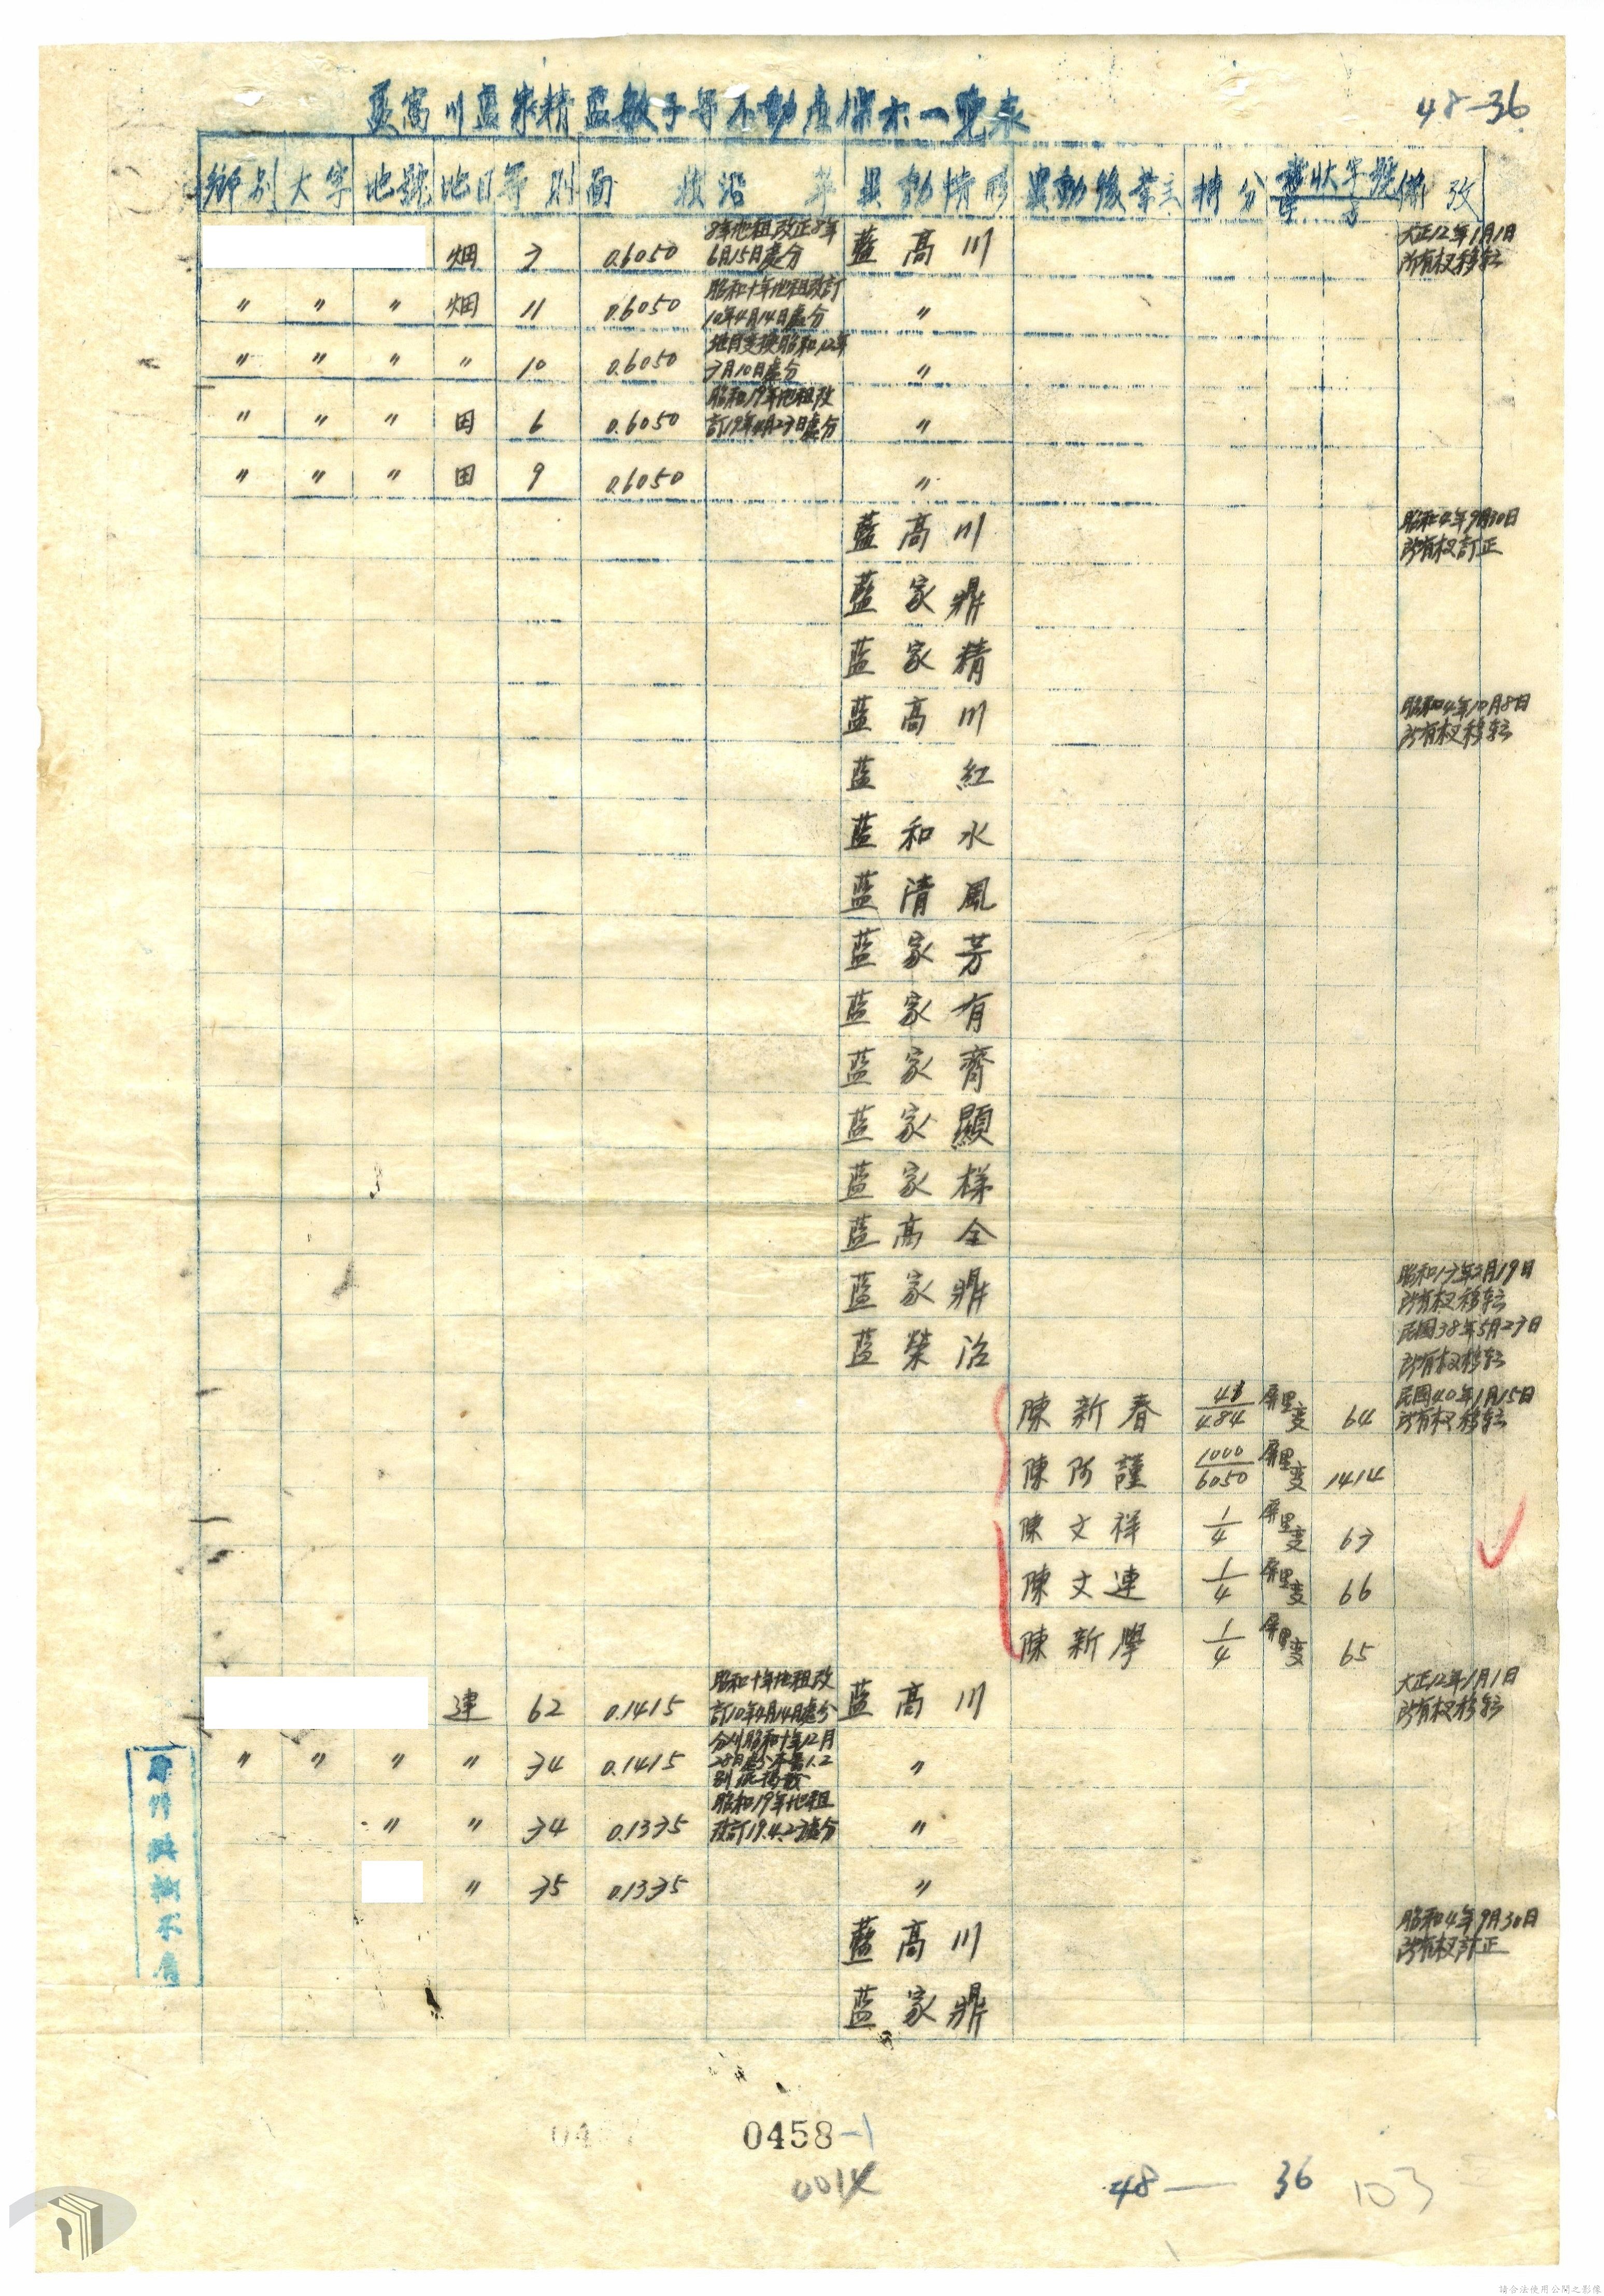 藍高川藍家精藍敏子等不動產標示一覽表
48-36
鄉別 大字 地號 地目 等則 面積 沿革 異動情形 異動後業主 持分 書狀字號 備攷
畑 3 0.6050 8年地租改正8年6月15日處分 藍高川 大正12年1月1日所有权移転
〃 〃 〃 畑 11 0.6050 昭和十年地租改訂10年4月14日處分 〃
〃 〃 〃 〃 10 0.6050 地目変換昭和12年3月10日處分 〃
〃 〃 〃 田 6 0.6050 昭和19年地租改訂19年4月23日處分 〃
〃 〃 〃 田 9 0.6050 〃
藍高川 昭和4年9月30日所有权訂正
藍家鼎
藍家精
藍高川 昭和4年10月8日所有权移転
藍 紅
藍和水
藍清風
藍家芳
藍家有
藍家齊
藍家顯
藍家樣
藍高全
藍家鼎 昭和13年3月19日所有权移転
藍榮治 民國38年5月23日所有权移転
陳新春 48/484 屏里変 64 民國40年1月15日所有权移転
陳阿謹 1000/6050 屏里変 1414
陳文祥 1/4 屏里変 63
陳文連 1/4 屏里変 66
陳新學 1/4 屏里変 65
建 62 0.1415 昭和十年地租改訂10年4月14日處分 藍高川 大正12年1月1日所有权移転
〃 〃 〃 〃 34 0.1415 分割昭和十年12月28日處分 〃
〃 〃 34 0.1335 昭和19年地租改訂19.4.23處分 〃
〃 35 0.1335 〃
藍高川 昭和4年9月30日所有权訂正
藍家鼎
原件模糊不清
0458-1
0014
48— 36 103
請合法使用公開之影像